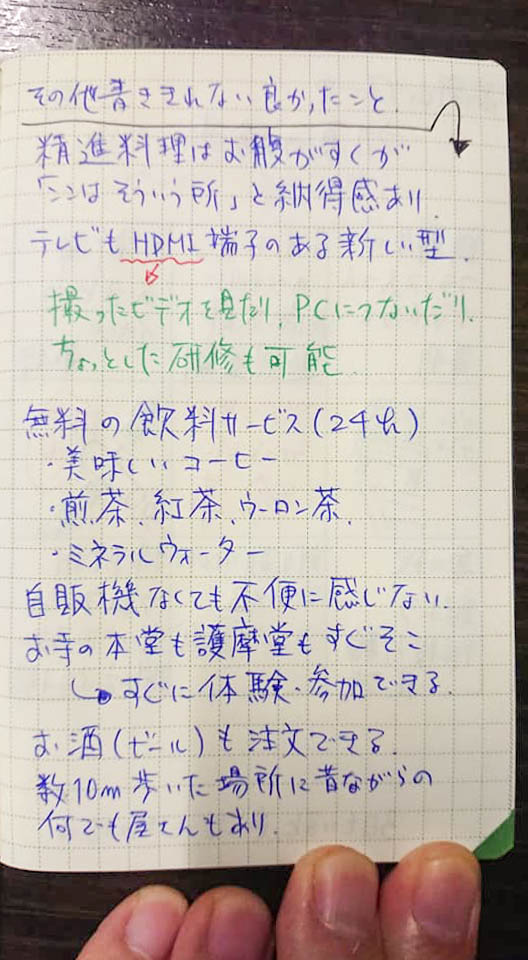 その他書ききれない良かったこと.
精進料理はお腹がすくが
「ここはそういう所」と納得感あり.
テレビもHDMI端子のある新しい型.
撮ったビデオを見たり、PCにつないだり.
ちょっとした研修も可能.
無料の飲料サービス(24h)
・美味しいコーヒー
・煎茶、紅茶、ウーロン茶.
・ミネラルウォーター
自販機なくても不便に感じない.
お寺の本堂も護摩堂もすぐそこ
すぐに体験・参加できる.
お酒(ビール)も注文できる.
数10m歩いた場所に昔ながらの
何でも屋さんもあり.